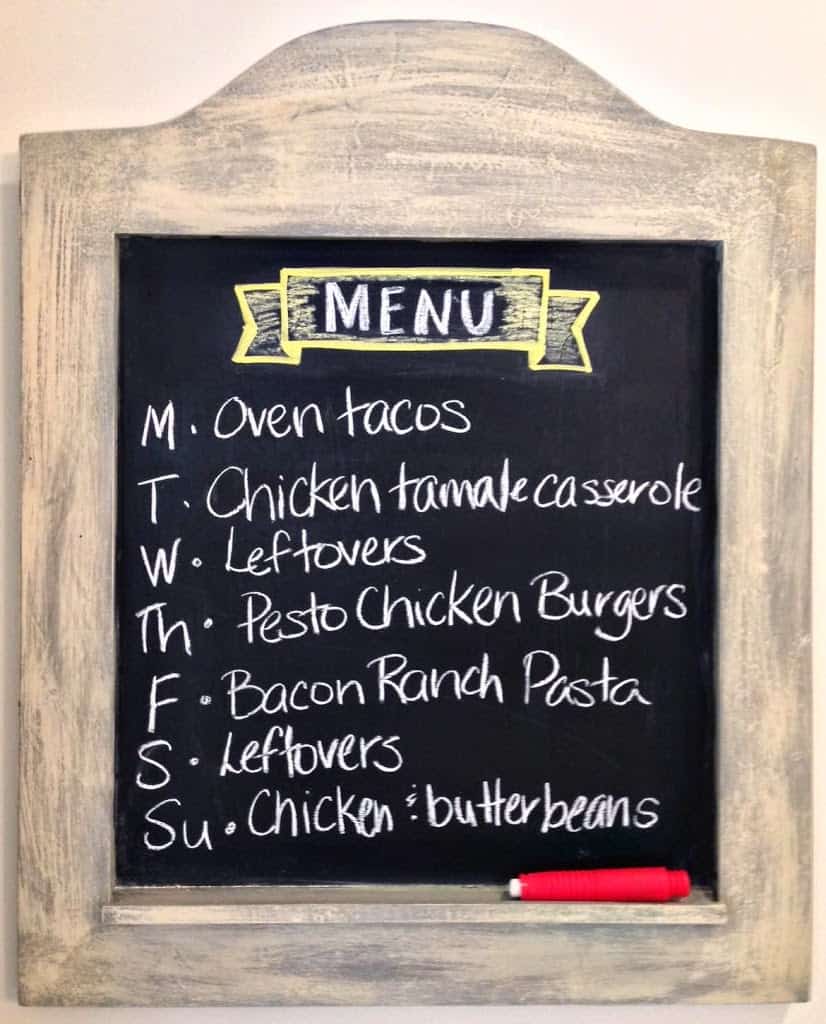 MENU
M. Oven tacos
T. Chicken tamale casserole
W. Leftovers
Th. Pesto Chicken Burgers
F. Bacon Ranch Pasta
S. Leftovers
Su. Chicken & butter beans